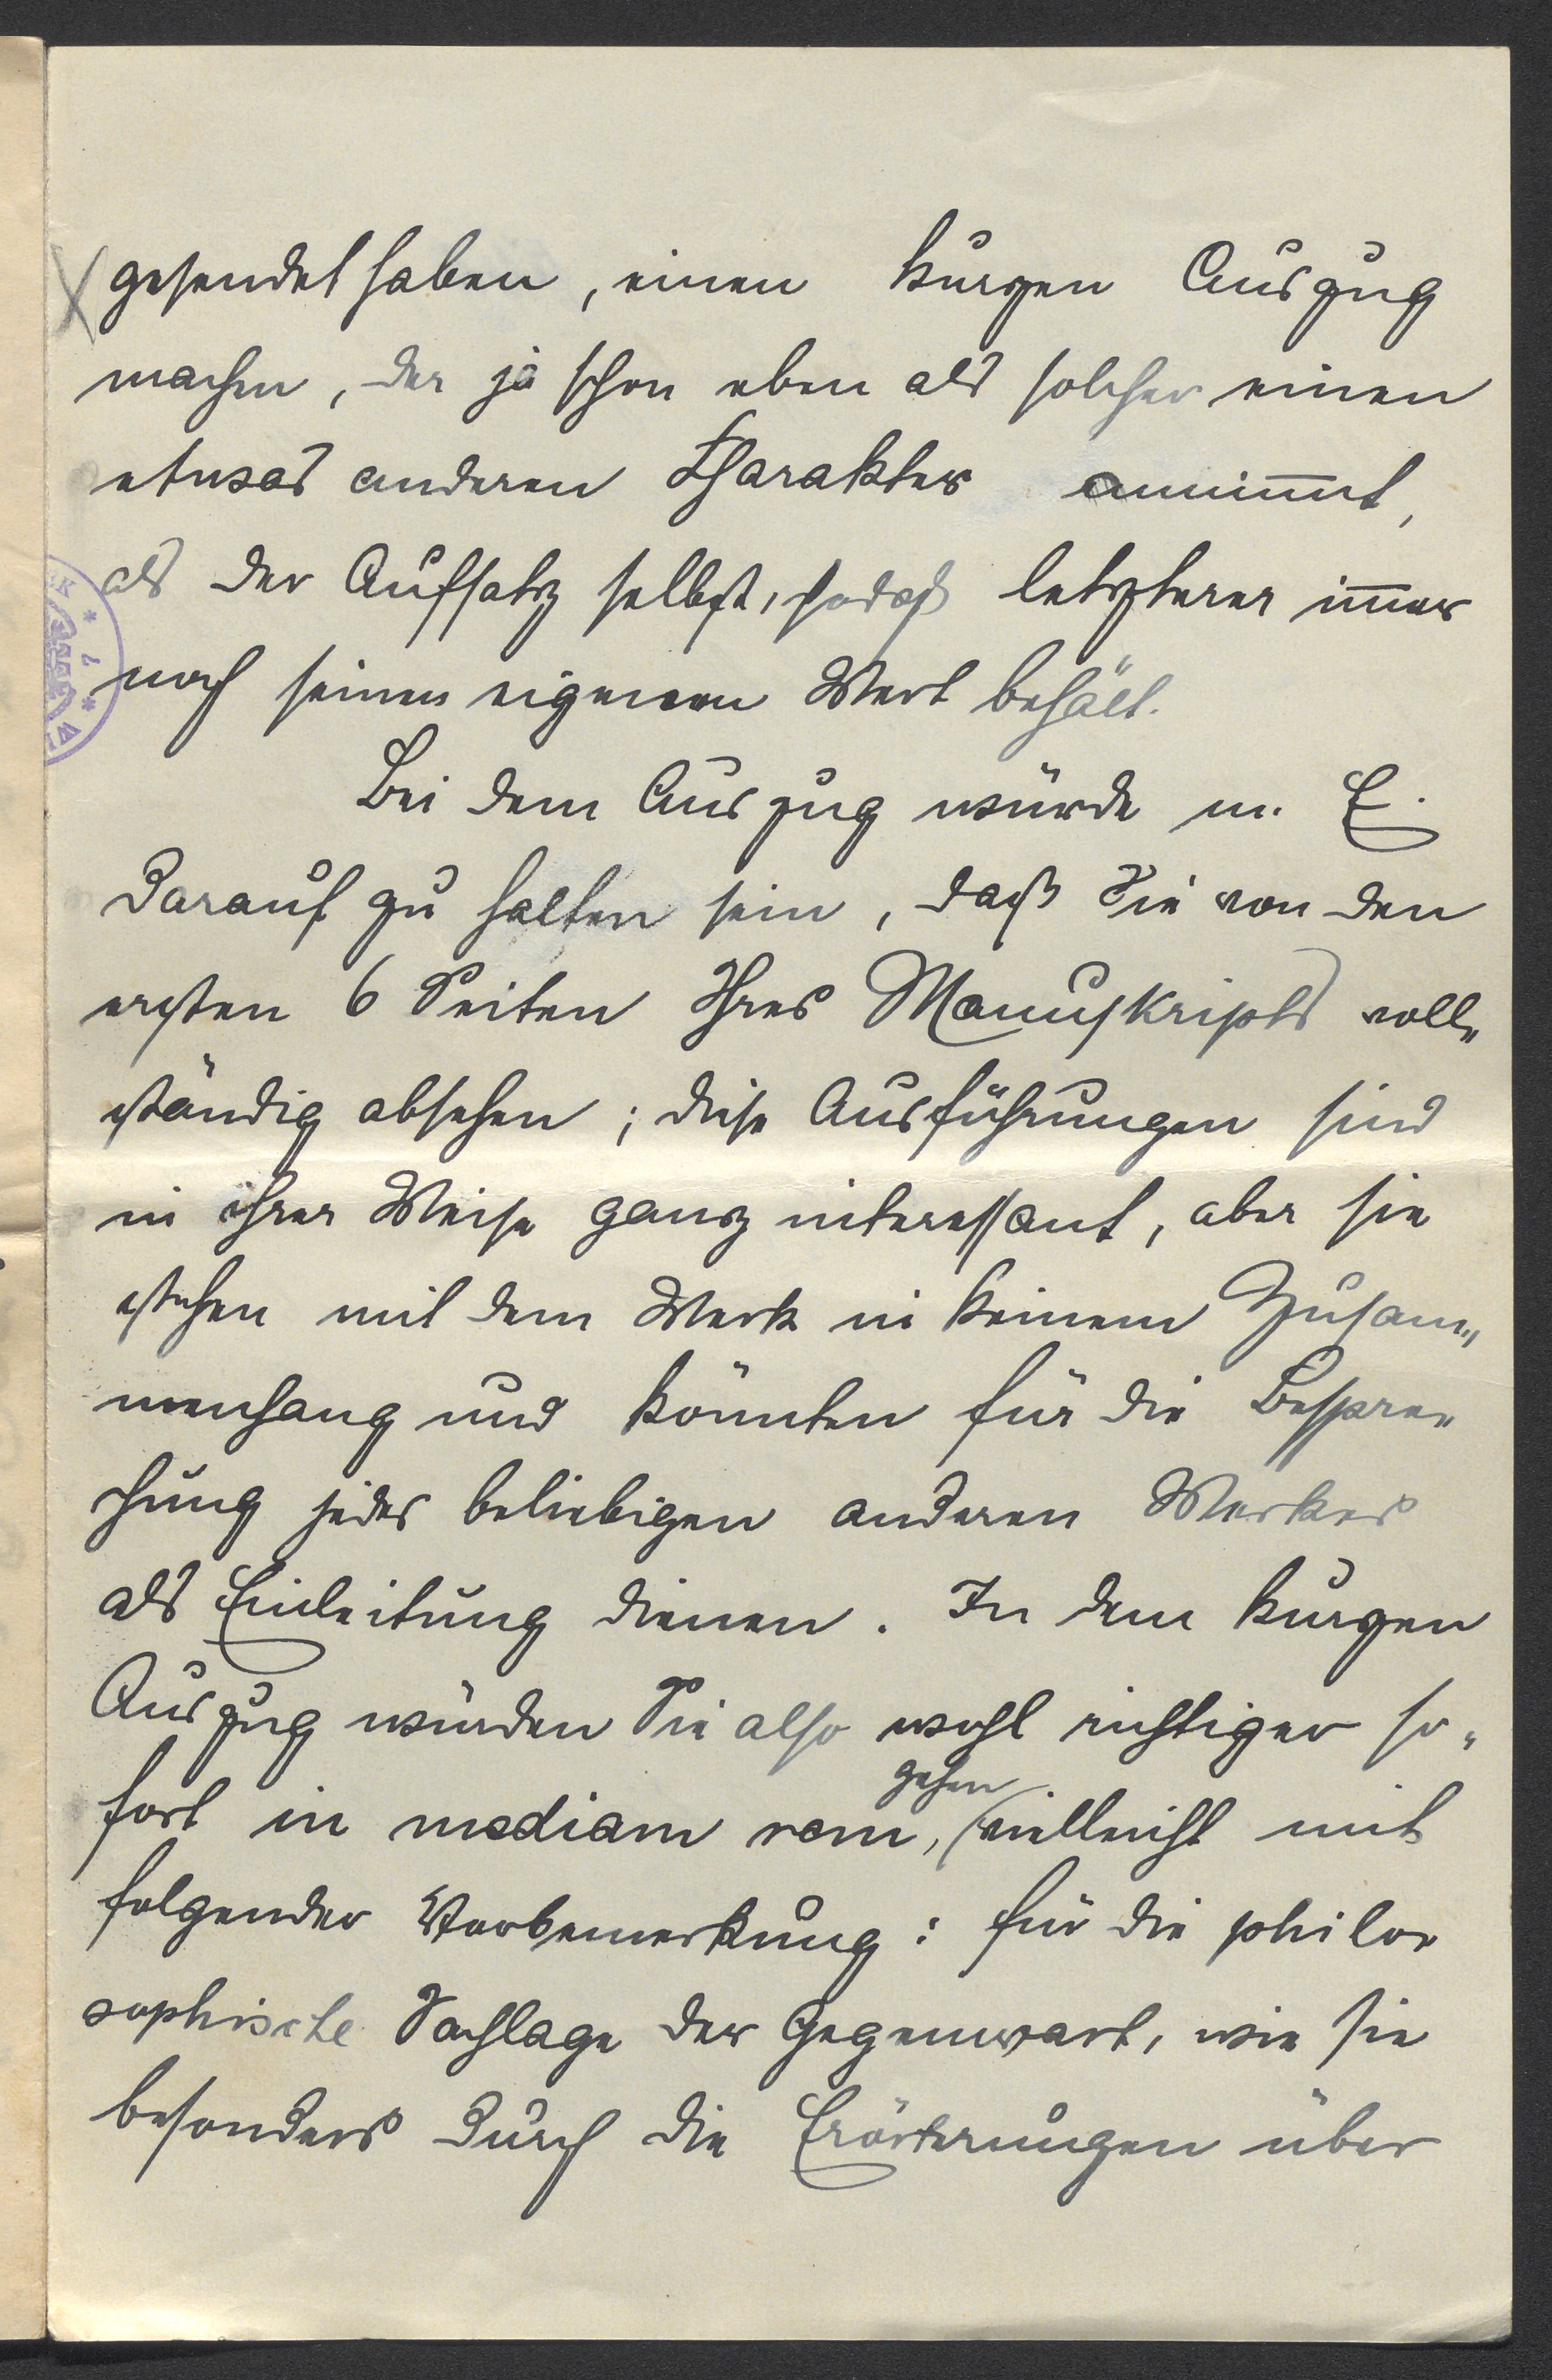 gesendet haben, einen kurzen Auszug
machen, der ja schon eben als solcher einen
etwas anderen Charakter annim̄t,
als der Aufsatz selbst, sodaß letzterer im̄er
noch seinen eigenen Wert behält.
Bei dem Auszug würde m. E.
darauf zu halten sein, daß Sie von den
ersten 6 Seiten Ihres Manuskripts voll„
ständig absehen; diese Ausführungen sind
in ihrer Weise ganz interessant, aber sie
stehen mit dem Werk in keinem Zusam„
menhang und könnten für die Bespre„
chung jedes beliebigen anderen Werkes
als Einleitung dienen. In dem kurzen
Auszug würden Sie also wohl richtiger so„
gehen
fort in mediam rem, vielleicht mit
folgender Vorbemerkung: für die philo„
sophische Sachlage der Gegenwart, wie sie
besonders durch die Erörterungen über